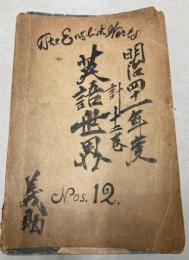 The English World
明治四十一年度
計十二巻
英語世界
Nos. 12.
義助